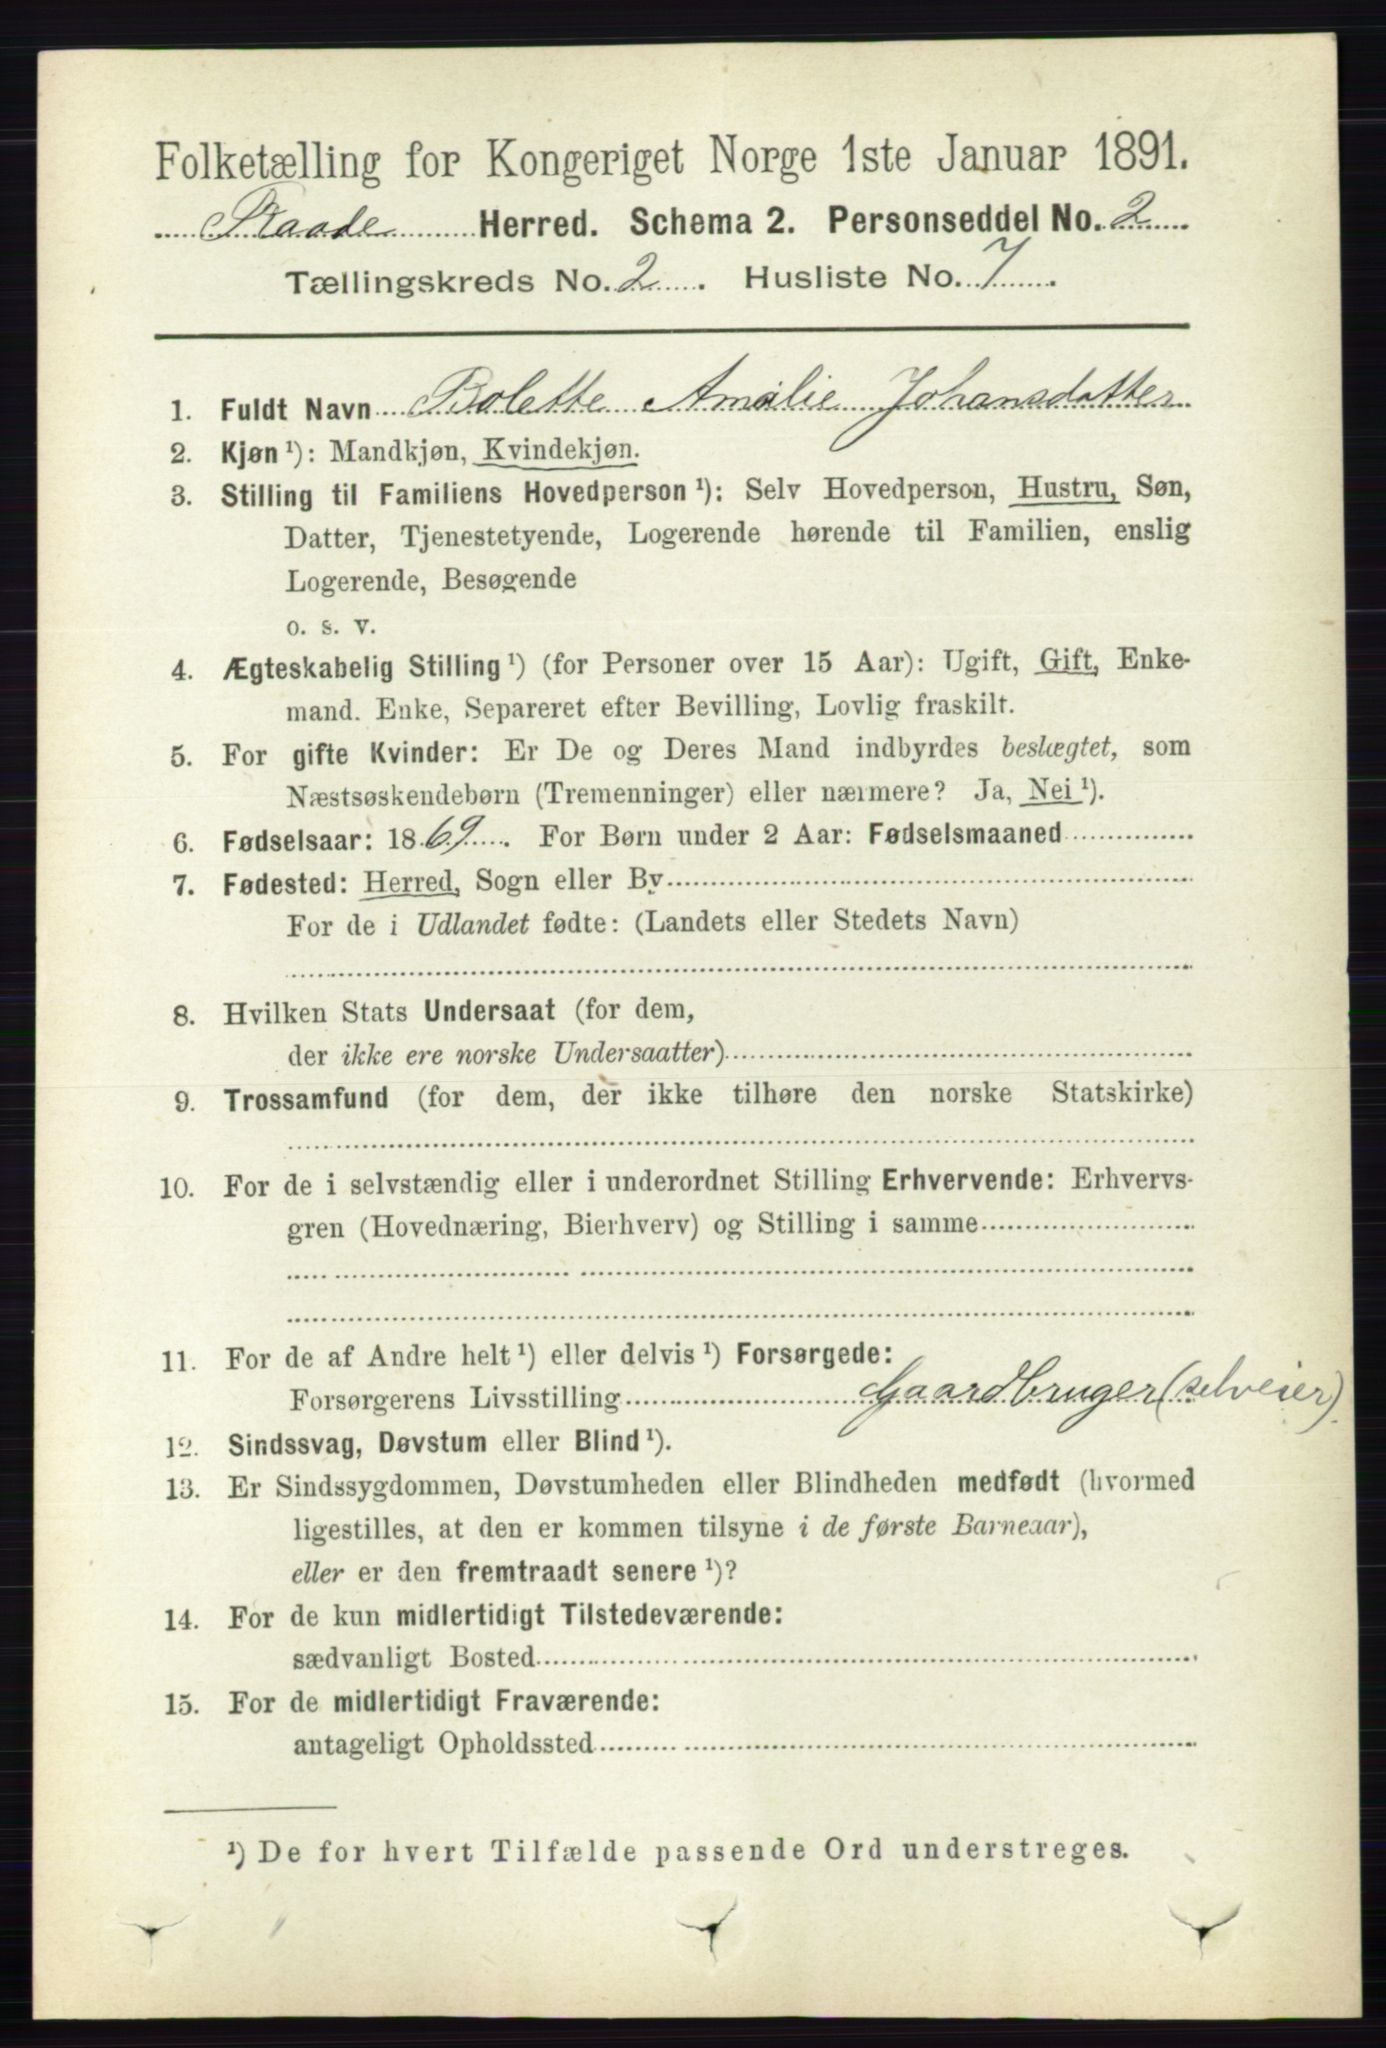 Folketælling for Kongeriget Norge 1ste Januar 1891.
Raade Herred. Schema 2. Personseddel No. 2
Tællingskreds No. 2. Husliste No. 7.
1. Fuldt Navn Bolette Amalie Johansdatter
2. Kjøn ¹): Mandkjøn, Kvindekjøn.
3. Stilling til Familiens Hovedperson ¹): Selv Hovedperson, Hustru, Søn,
Datter, Tjenestetyende, Logerende hørende til Familien, enslig
Logerende, Besøgende
o. s. v.
4. Ægteskabelig Stilling ¹) (for Personer over 15 Aar): Ugift, Gift, Enke-
mand. Enke, Separeret efter Bevilling, Lovlig fraskilt.
5. For gifte Kvinder: Er De og Deres Mand indbyrdes beslægtet, som
Næstsøskendebørn (Tremenninger) eller nærmere? Ja, Nei ¹).
6. Fødselsaar: 1869. For Børn under 2 Aar: Fødselsmaaned
7. Fødested: Herred, Sogn eller By
For de i Udlandet fødte: (Landets eller Stedets Navn)
8. Hvilken Stats Undersaat (for dem,
der ikke ere norske Undersaatter)
9. Trossamfund (for dem, der ikke tilhøre den norske Statskirke)
10. For de i selvstændig eller i underordnet Stilling Erhvervende: Erhvervs-
gren (Hovednæring, Bierhverv) og Stilling i samme
11. For de af Andre helt ¹) eller delvis ¹) Forsørgede:
Forsørgerens Livsstilling Gaardbruger (selveier)
12. Sindssvag, Døvstum eller Blind ¹).
13. Er Sindssygdommen, Døvstumheden eller Blindheden medfødt (hvormed
ligestilles, at den er kommen tilsyne i de første Barneaar),
eller er den fremtraadt senere ¹)?
14. For de kun midlertidigt Tilstedeværende:
sædvanligt Bosted
15. For de midlertidigt Fraværende:
antageligt Opholdssted
¹) De for hvert Tilfælde passende Ord understreges.